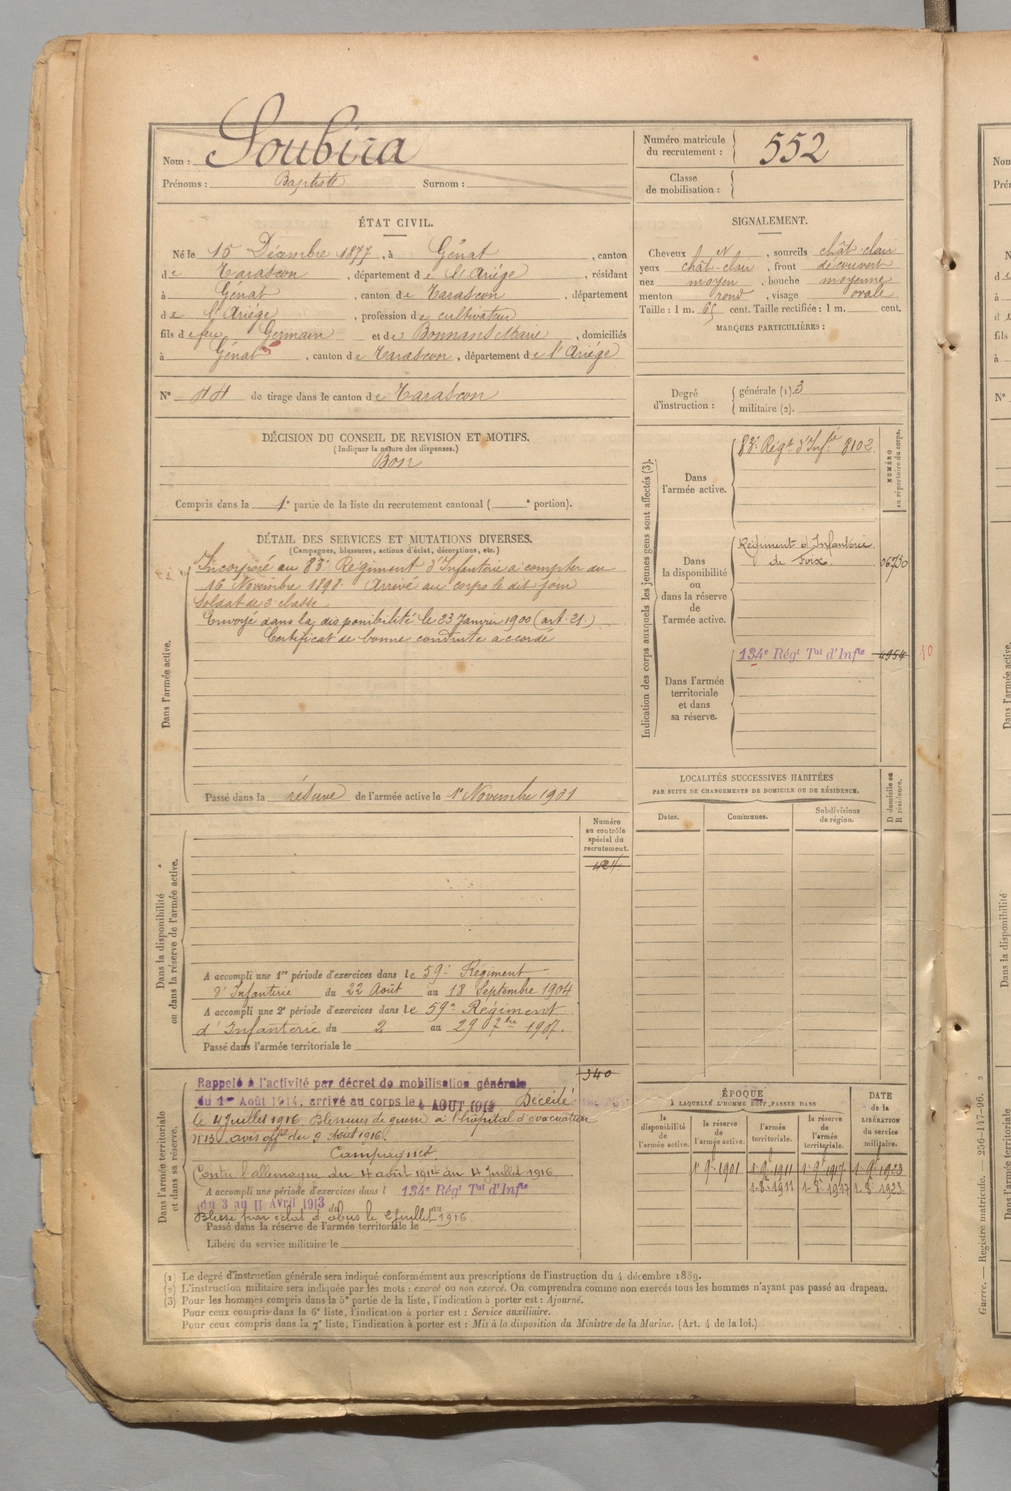 Nom : Soubira
Prénoms : Baptiste Surnom :
Numéro matricule du recrutement : 552
Classe de mobilisation :
ÉTAT CIVIL.
Né le 15 Décembre 1877, à Génat, canton
de Tarascon, département de l'Ariége, résidant
à Génat, canton de Tarascon, département
de l'Ariége, profession de cultivateur
fils de feu Germain et de Bonnans Marie, domiciliés
à Génat, canton de Tarascon, département de l'Ariége
N° 44 de tirage dans le canton de Tarascon
SIGNALEMENT.
Cheveux, sourcils chât-clair
yeux chât-clair, front découvert
nez moyen, bouche moyenne
menton rond, visage ovale
Taille : 1 m. 65 cent. Taille rectifiée : 1 m. cent.
MARQUES PARTICULIÈRES :
Degré d'instruction : générale (1) 3
militaire (2).
DÉCISION DU CONSEIL DE REVISION ET MOTIFS.
(Indiquer la nature des dispenses.)
Bon
Compris dans la 1e partie de la liste du recrutement cantonal ( e portion).
DÉTAIL DES SERVICES ET MUTATIONS DIVERSES.
(Campagnes, blessures, actions d'éclat, décorations, etc.)
Dans l'armée active.
Incorporé au 83e Régiment d'Infanterie à compter du
16 Novembre 1898 Arrivé au corps le dit jour
Soldat de 2e classe
Envoyé dans la disponibilité le 23 Janvier 1900 (art. 21.)
Certificat de bonne conduite accordé
Passé dans la réserve de l'armée active le 1er Novembre 1901
Indication des corps auxquels les jeunes gens sont affectés (3).
NUMÉRO au répertoire du corps.
Dans l'armée active.
83e Régt d'Inf. 8102
Dans la disponibilité ou dans la réserve de l'armée active.
Régiment d'Infanterie
de Foix. 06730
Dans l'armée territoriale et dans sa réserve.
134e Régt Tal d'Infie 4954 10
LOCALITÉS SUCCESSIVES HABITÉES
PAR SUITE DE CHANGEMENTS DE DOMICILE OU DE RÉSIDENCE.
D domicile ou R résidence.
Dates. Communes. Subdivisions de région.
Dans la disponibilité ou dans la réserve de l'armée active.
Numéro au contrôle spécial du recrutement.
A accompli une 1re période d'exercices dans le 59e Régiment
d'Infanterie du 22 Août au 18 Septembre 1904
A accompli une 2e période d'exercices dans le 59e Régiment
d'Infanterie du 2 au 29 7bre 1907.
Passé dans l'armée territoriale le
Dans l'armée territoriale et dans sa réserve.
340
Rappelé à l'activité par décret de mobilisation générale
du 1er Août 1914, arrivé au corps le 4 AOUT 1914 Décédé
le 4 Juillet 1916 Blessures de guerre à l'hôpital d'évacuation
n°13 avis offel du 9 Août 1916.
Campagnes
Contre l'allemagne du 4 août 1914 au 4 Juillet 1916
A accompli une période d'exercices dans l 134e Régt Tal d'Infie
du 3 au 11 Avril 1913 du au
Blessé par éclat d'obus le 2 Juillet 1916.
Passé dans la réserve de l'armée territoriale le
Libéré du service militaire le
ÉPOQUE
À LAQUELLE L'HOMME DOIT PASSER DANS
la disponibilité de l'armée active.
la réserve de l'armée active.
l'armée territoriale.
la réserve de l'armée territoriale.
DATE de la LIBÉRATION du service militaire.
1er 9e 1901 1er 9e 1911 1er 9e 1917 1er 9e 1923
(1) Le degré d'instruction générale sera indiqué conformément aux prescriptions de l'instruction du 4 décembre 1889.
(2) L'instruction militaire sera indiquée par les mots : exercé ou non exercé. On comprendra comme non exercés tous les hommes n'ayant pas passé au drapeau.
(3) Pour les hommes compris dans la 5e partie de la liste, l'indication à porter est : Ajourné.
Pour ceux compris dans la 6e liste, l'indication à porter est : Service auxiliaire.
Pour ceux compris dans la 7e liste, l'indication à porter est : Mis à la disposition du Ministre de la Marine. (Art. 4 de la loi.)
Guerre. — Registre matricule. — 256-147-96.